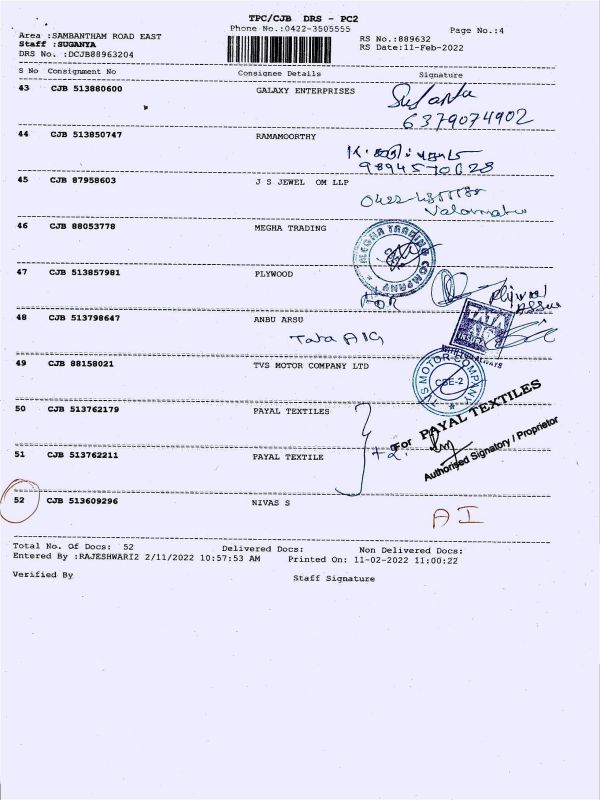 TPC/CJB DRS - PC2
Phone No.:0422-3505555
Page No.:4
Area :SAMBANTHAM ROAD EAST
RS No.:889632
Staff :SUGANYA
RS Date:11-Feb-2022
DRS No. :DCJB88963204
S No Consignment No Consignee Details Signature
43 CJB 513880600 GALAXY ENTERPRISES
6379074902
44 CJB 513850747 RAMAMOORTHY
9894570628
45 CJB 87958603 J S JEWEL OM LLP
46 CJB 88053778 MEGHA TRADING
MEGHA TRADING COMPANY
47 CJB 513857981 PLYWOOD
Plywood
48 CJB 513798647 ANBU ARSU
Tata AIG
TATA
49 CJB 88158021 TVS MOTOR COMPANY LTD
TVS MOTOR COMPANY
CBE-2
50 CJB 513762179 PAYAL TEXTILES
For PAYAL TEXTILES
51 CJB 513762211 PAYAL TEXTILE
Authorised Signatory / Proprietor
52 CJB 513609296 NIVAS S
AI
Total No. Of Docs: 52 Delivered Docs: Non Delivered Docs:
Entered By :RAJESHWARI2 2/11/2022 10:57:53 AM Printed On: 11-02-2022 11:00:22
Verified By Staff Signature